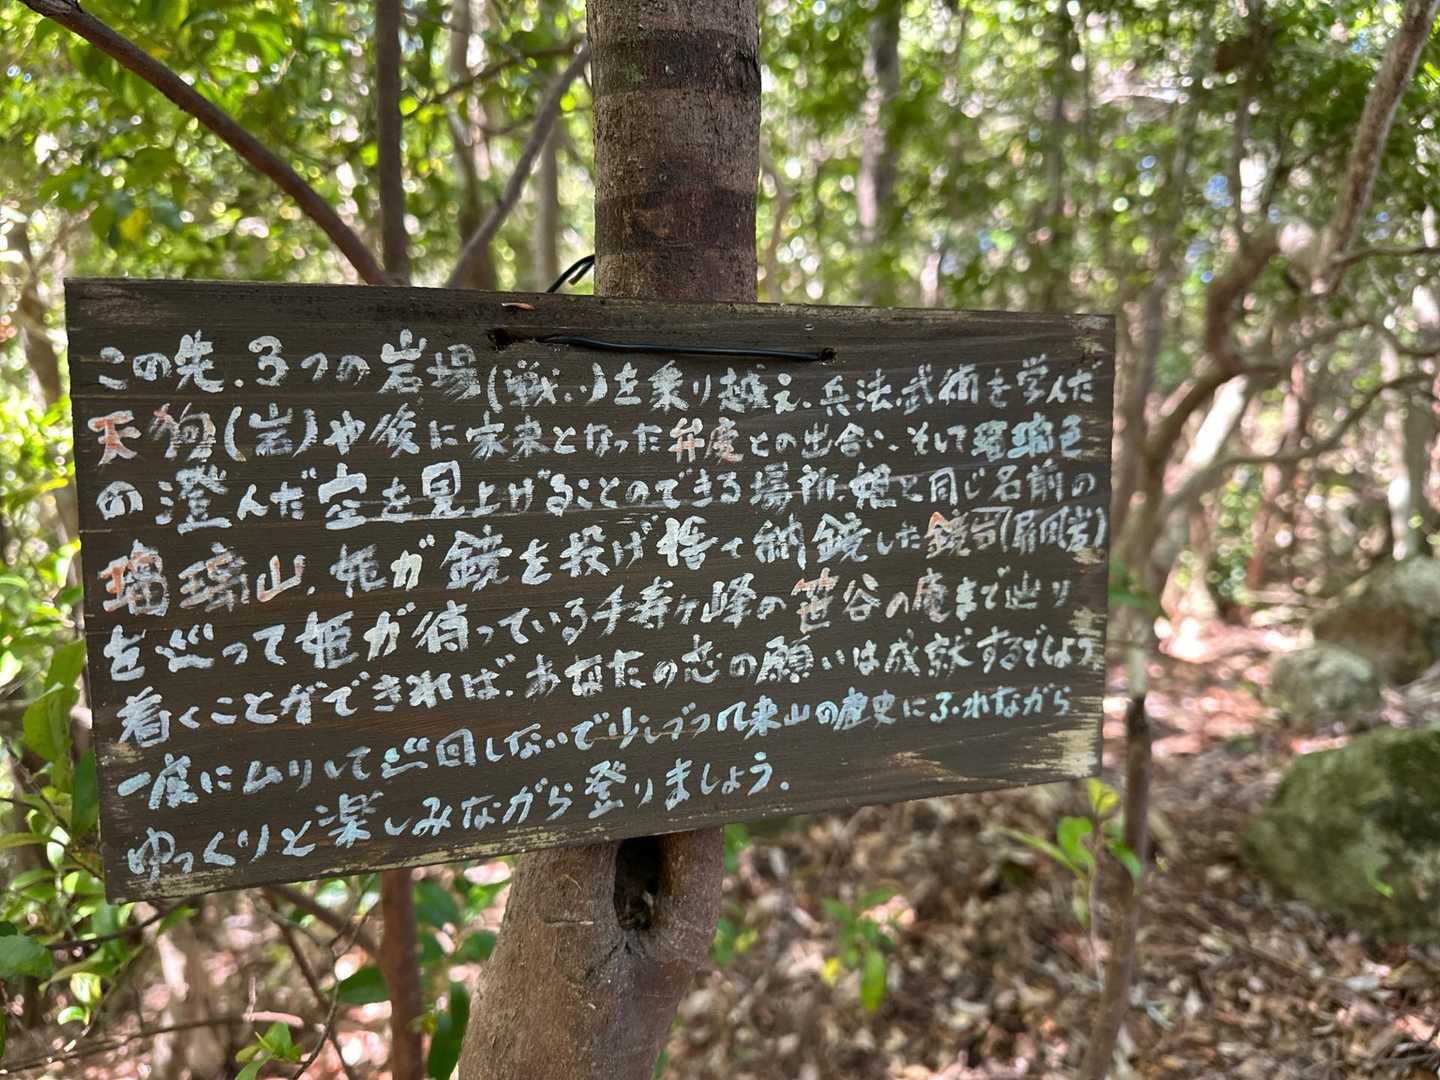 この先、3つの岩場(戦い)を乗り越え、兵法、武術を学んだ
天狗(岩)や後に家来となった弁慶との出合い、そして瑠璃色
の澄んだ空を見上げることのできる場所、姫と同じ名前の
瑠璃山、姫が鏡を投げ捨て納鏡した鏡岩(屏風岩)
を巡って姫が待っている千寿ヶ峰の笹谷の庵まで辿り
着くことができれば、あなたの恋の願いは成就するでしょう
一度にムリして巡回しないで少しづつ来山の歴史にふれながら
ゆっくりと楽しみながら登りましょう。